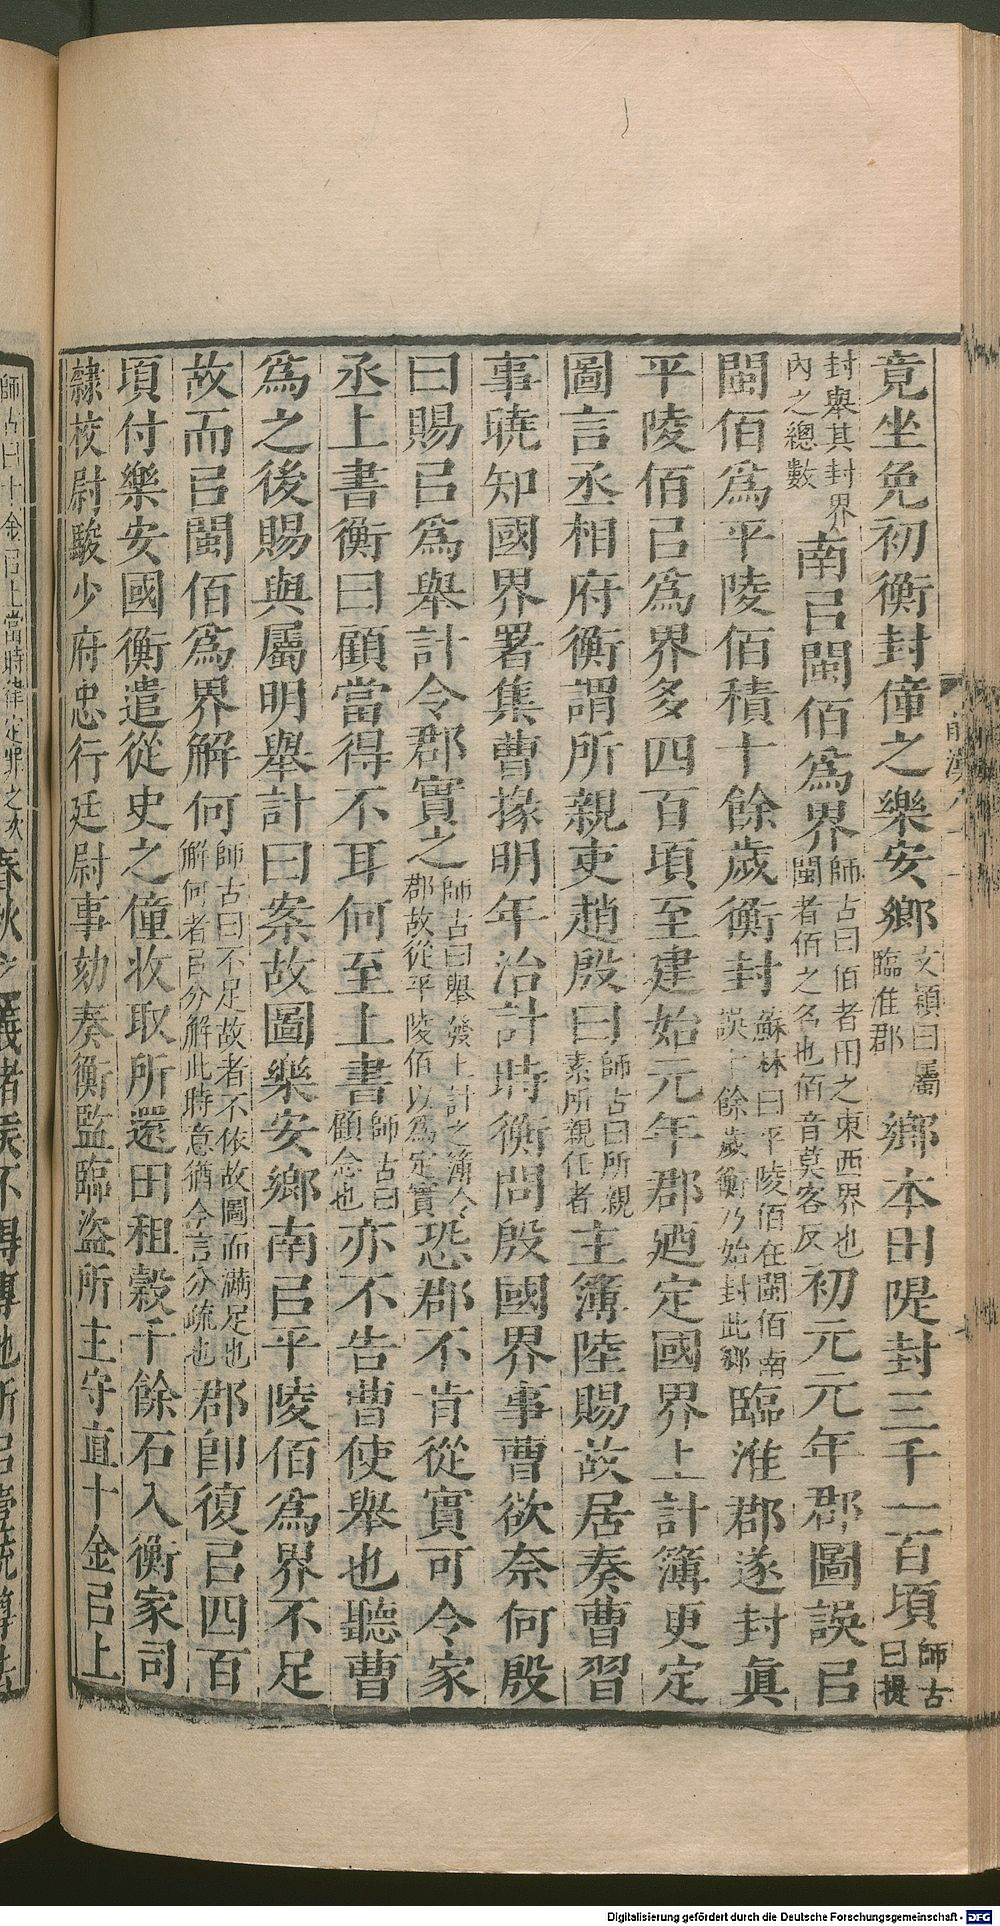 竟坐免初衡封僮之樂安鄉文穎曰屬臨淮郡鄉本田隄封三千一百頃師古曰提
封舉其封界內之總數南㠯閩佰爲界師古曰佰者田之東西界也閩者佰之名也佰音莫客反初元元年郡圖誤㠯
閩佰爲平陵佰積十餘歲衡封蘇林曰平陵佰在閩佰南誤十餘歲衡乃始封此鄉臨淮郡遂封眞
平陵佰㠯爲界多四百頃至建始元年郡迺定國界上計簿更定
圖言丞相府衡謂所親吏趙殷曰師古曰所親素所親任者主簿陸賜故居奏曹習
事曉知國界署集曹掾明年治計時衡問殷國界事曹欲奈何殷
曰賜㠯爲舉計令郡實之師古曰舉發上計之簿令郡故從平陵佰以爲定實恐郡不肯從實可令家
丞上書衡曰顧當得不耳何至上書師古曰顧念也亦不告曹使舉也聽曹
爲之後賜與屬明舉計曰案故圖樂安鄉南㠯平陵佰爲界不足
故而㠯閩佰爲界解何師古曰不足故者不依故圖而滿足也解何者㠯分解此時意猶今言分疏也郡卽復㠯四百
頃付樂安國衡遣從史之僮收取所還田租穀千餘石入衡家司
隸校尉駿少府忠行廷尉事劾奏衡監臨盜所主守直十金㠯上
師古曰十金㠯上當時律定罪之次春秋之義諸侯不得專地所㠯壹統尊法
前漢八十一
Digitalisierung gefördert durch die Deutsche Forschungsgemeinschaft - DFG